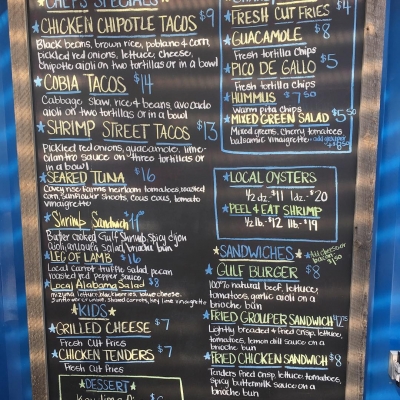 CHEF'S SPECIALS
CHICKEN CHIPOTLE TACOS $9
Black beans, brown rice, poblano & corn,
pickled red onions, lettuce, cheese,
Chipotle aioli on two tortillas or in a bowl
COBIA TACOS $14
Cabbage Slaw, rice & beans, avocado
aioli on two tortillas or in a bowl
SHRIMP STREET TACOS $13
Pickled red onions, guacamole, lime-
cilantro sauce on three tortillas or
in a bowl
SEARED TUNA $16
heirloom tomatoes, roasted
corn, Sunflower Shoots, Cous Cous, tomato
vinaigrette
Shrimp Sandwich $11
Butter cooked Gulf Shrimp, Spicy dijon
aioli, arugula salad, brioche bun
LEG OF LAMB $16
Local Carrot truffle Salad, pecan
roasted red pepper sauce
Local Alabama Salad $8
mizuna lettuce, blackberries, blue cheese,
KIDS
GRILLED CHEESE $7
Fresh Cut Fries
CHICKEN TENDERS $7
Fresh Cut Fries
DESSERT
Key lime
FRESH CUT FRIES $4
GUACAMOLE $8
Fresh tortilla Chips
PICO DE GALLO $5
Fresh tortilla Chips
HUMMUS $7.50
Warm pita chips
MIXED GREEN SALAD $5.50
Mixed greens, cherry tomatoes
balsamic vinaigrette
LOCAL OYSTERS
1/2 dz. $11 1 dz. $20
PEEL & EAT SHRIMP
1/2 lb. $12 1 lb. $19
SANDWICHES
GULF BURGER $8
100% natural beef, lettuce,
tomatoes, garlic aioli on a
brioche bun
FRIED GROUPER SANDWICH
Lightly breaded & fried crisp, lettuce,
tomatoes, lemon dill sauce on a
brioche bun
FRIED CHICKEN SANDWICH $8
Tenders fried crisp, lettuce, tomatoes,
spicy buttermilk sauce on a
brioche bun